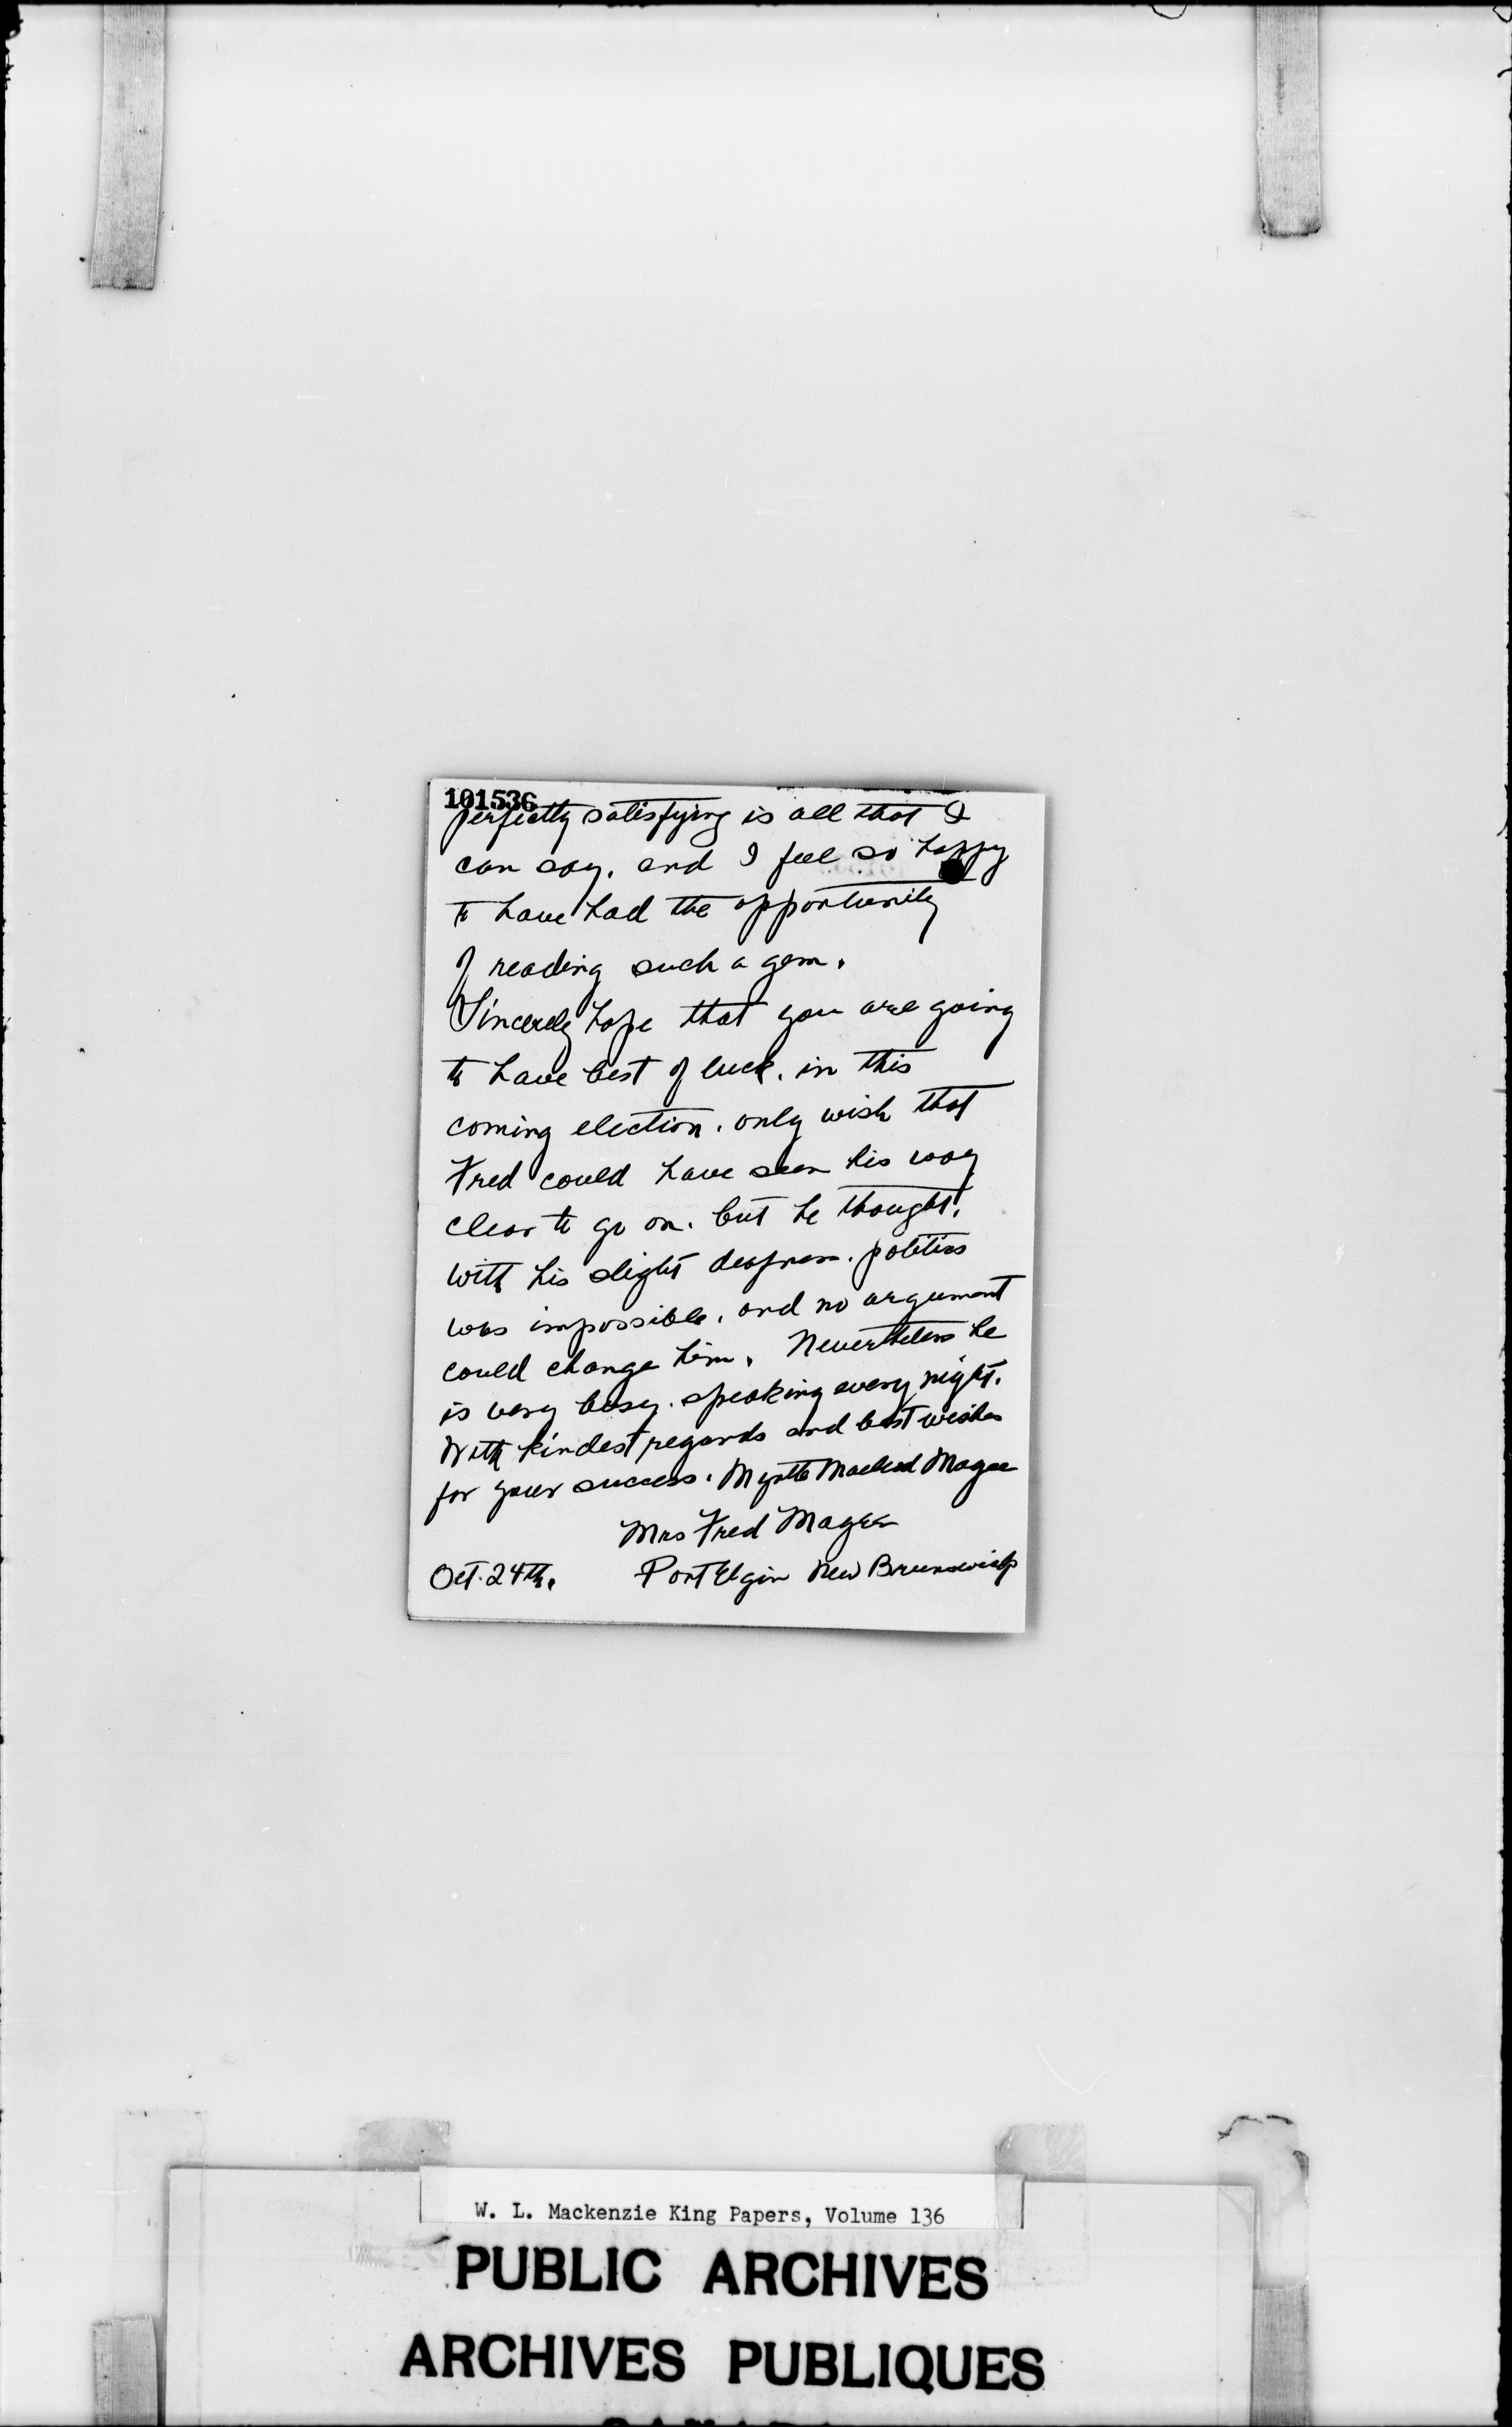 101536
perfectly satisfying is all that I
can say. and I feel so happy
to have had the opportunity
of reading such a gem.
Sincerely hope that you are going
to have best of luck. in this
coming election. only wish that
Fred could have seen his way
clear to go on. but he thought.
with his slight deafness. politics
was impossible. and no argument
could change him. Nevertheless he
is very busy. speaking every night.
With kindest regards and best wishes
for your success. Myrtle Macleod Magee
Mrs Fred Magee
Oct. 24th. Port Elgin New Brunswick
W. L. Mackenzie King Papers, Volume 136
PUBLIC ARCHIVES
ARCHIVES PUBLIQUES
CANADA